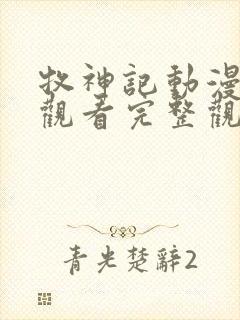 牧神記動漫
觀看完整觀
青光楚辭2